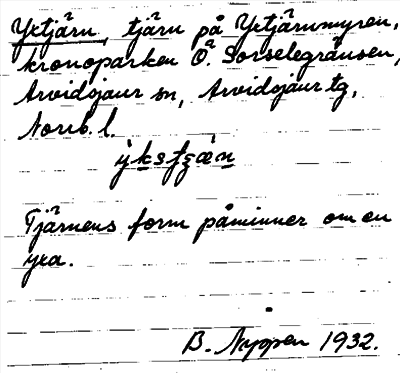 Yxtjärn, tjärn på Yxtjärnmyren,
kronoparken Ö. Sorselegränsen,
Arvidsjaur sn, Arvidsjaur tg,
Norrb. l.
Tjärnens form påminner om en
yxa.
B. Nyppen 1932.